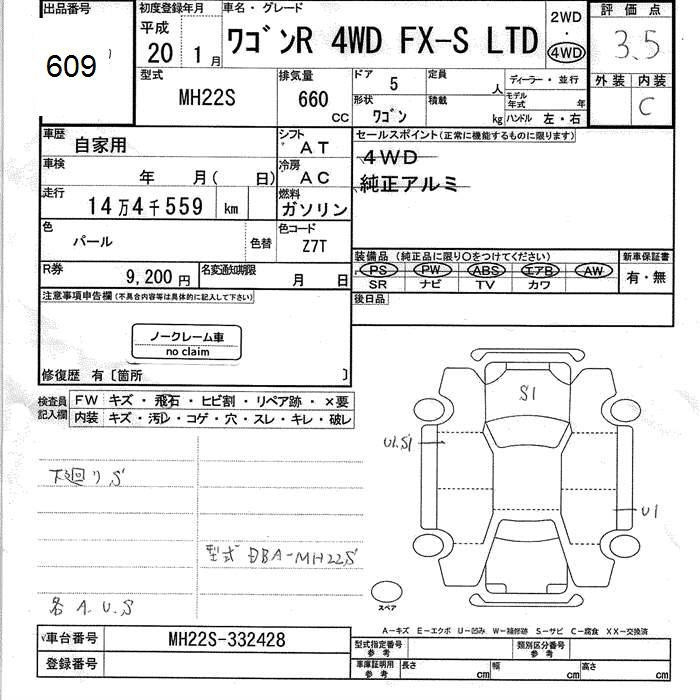 出品番号
609
初度登録年月
平成
20 1月
車名・グレード
ワゴンR 4WD FX-S LTD
2WD
・
4WD
評価点
3.5
外装 内装
C
型式
MH22S
排気量
660
CC
ドア 5
形状
ワゴン
定員 人
積載 kg
ディーラー・並行
モデル年式 年
ハンドル 左・右
車歴
自家用
シフト
AT
セールスポイント(正常に機能するものに限ります)
4WD
純正アルミ
車検
年 月( 日)
冷房
AC
走行
14万4千559 km
燃料
ガソリン
色
パール
色替
色コード
Z7T
装備品(純正品に限り○をつけてください)
PS PW ABS エアB AW
SR ナビ TV カワ
新車保証書
有・無
R券
9,200円
名変通知期限
月 日
後日品
注意事項申告欄(不具合内容等は具体的に記入して下さい)
ノークレーム車
no claim
修復歴 有〔箇所 〕
検査員記入欄
FW キズ・飛石・ヒビ割・リペア跡・×要
内装 キズ・汚レ・コゲ・穴・スレ・キレ・破レ
S1
U1.S1
U1
下廻りS
型式 DBA-MH22S
各 A.U.S
スペア
A－キズ E－エクボ U－凹み W－補修跡 S－サビ C－腐食 XX－交換済
車台番号
MH22S-332428
登録番号
型式指定番号
参考
類別区分番号
参考
車庫証明用
参考
長さ cm
幅 cm
高さ cm